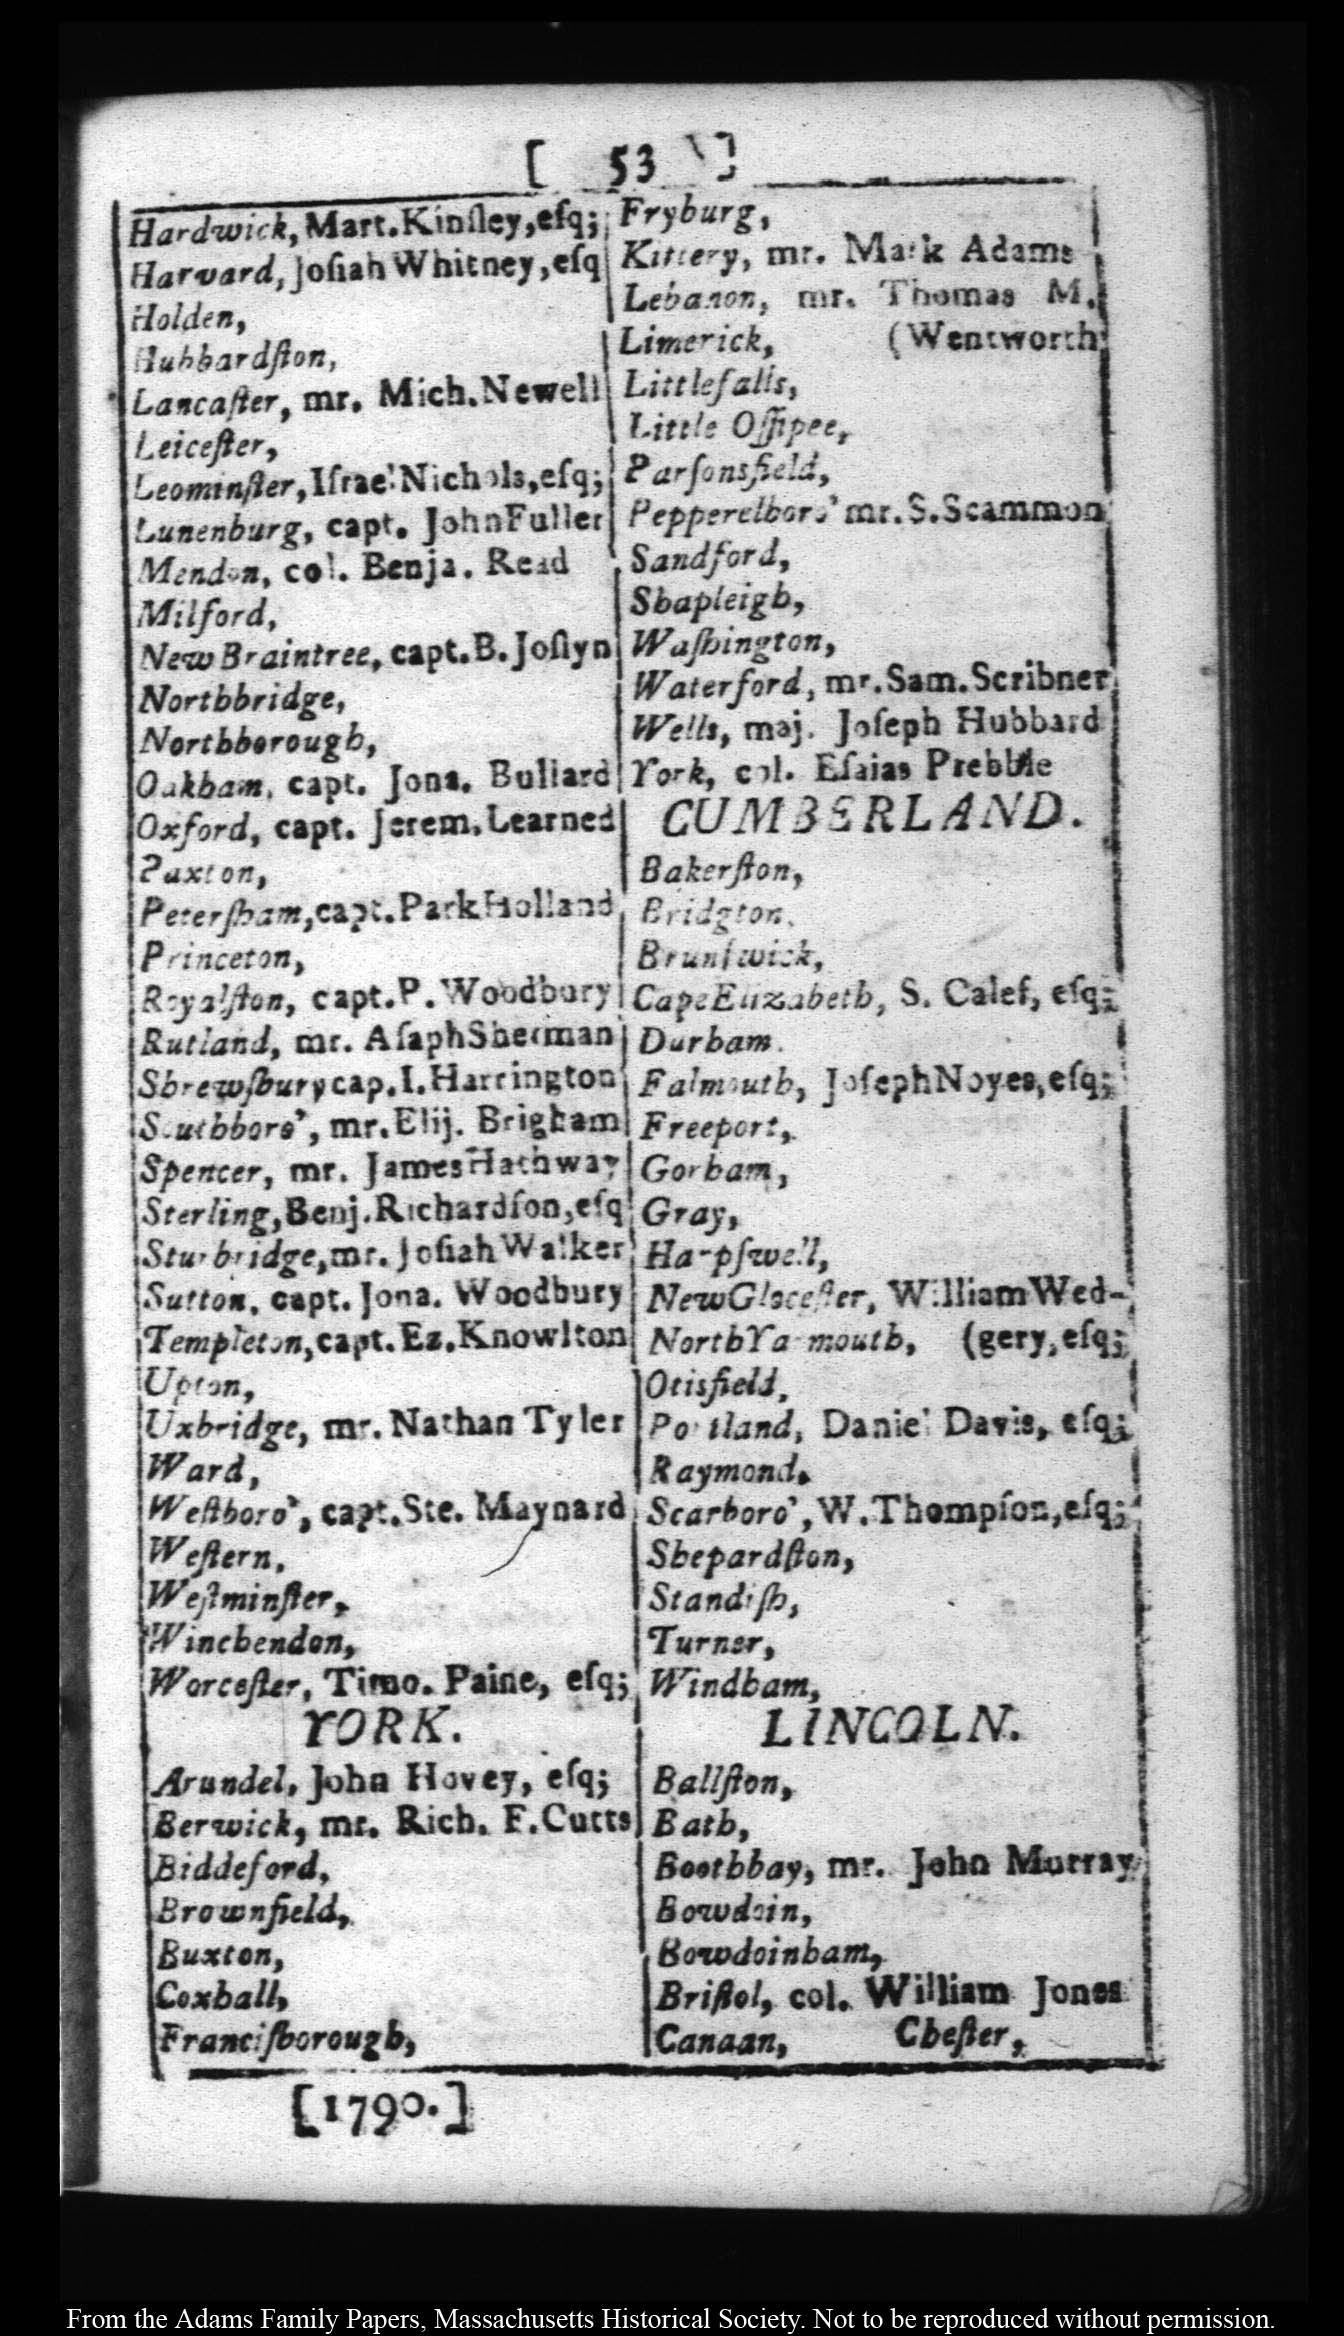 [ 53 ]
Hardwick, Mart. Kinſley, eſq;
Harvard, Joſiah Whitney, eſq
Holden,
Hubbardſton,
Lancaſter, mr. Mich. Newell
Leiceſter,
Leominſter, Iſrael Nichols, eſq;
Lunenburg, capt. John Fuller
Mendon, col. Benja. Read
Milford,
New Braintree, capt. B. Joſlyn
Northbridge,
Northborough,
Oakham, capt. Jona. Bullard
Oxford, capt. Jerem. Learned
Paxton,
Peterſham, capt. Park Holland
Princeton,
Royalſton, capt. P. Woodbury
Rutland, mr. Aſaph Sherman
Shrewſbury cap. I. Harrington
Southboro', mr. Elij. Brigham
Spencer, mr. James Hathway
Sterling, Benj. Richardſon, eſq
Sturbridge, mr. Joſiah Walker
Sutton, capt. Jona. Woodbury
Templeton, capt. Ez. Knowlton
Upton,
Uxbridge, mr. Nathan Tyler
Ward,
Weſtboro', capt. Ste. Maynard
Weſtern,
Weſtminſter,
Winchendon,
Worceſter, Timo. Paine, eſq;
YORK.
Arundel, John Hovey, eſq;
Berwick, mr. Rich. F. Cutts
Biddeford,
Brownfield,
Buxton,
Coxhall,
Franciſborough,
Fryburg,
Kittery, mr. Mark Adams
Lebanon, mr. Thomas M.
Limerick, (Wentworth
Littlefalls,
Little Oſſipee,
Parſonsfield,
Pepperelboro' mr. S. Scammon
Sandford,
Shapleigh,
Waſhington,
Waterford, mr. Sam. Scribner
Wells, maj. Joſeph Hubbard
York, col. Eſaias Prebble
CUMBERLAND.
Bakerſton,
Bridgton,
Brunſwick,
Cape Elizabeth, S. Calef, eſq;
Durham.
Falmouth, Joſeph Noyes, eſq;
Freeport,
Gorham,
Gray,
Harpſwell,
New Gloceſter, William Wed-
North Yarmouth, (gery, eſq;
Otisfield,
Portland, Daniel Davis, eſq;
Raymond,
Scarboro', W. Thompſon, eſq;
Shepardſton,
Standiſh,
Turner,
Windham,
LINCOLN.
Ballſton,
Bath,
Boothbay, mr. John Murray
Bowdoin,
Bowdoinham,
Briſtol, col. William Jones
Canaan, Cheſter,
[1790.]
From the Adams Family Papers, Massachusetts Historical Society. Not to be reproduced without permission.